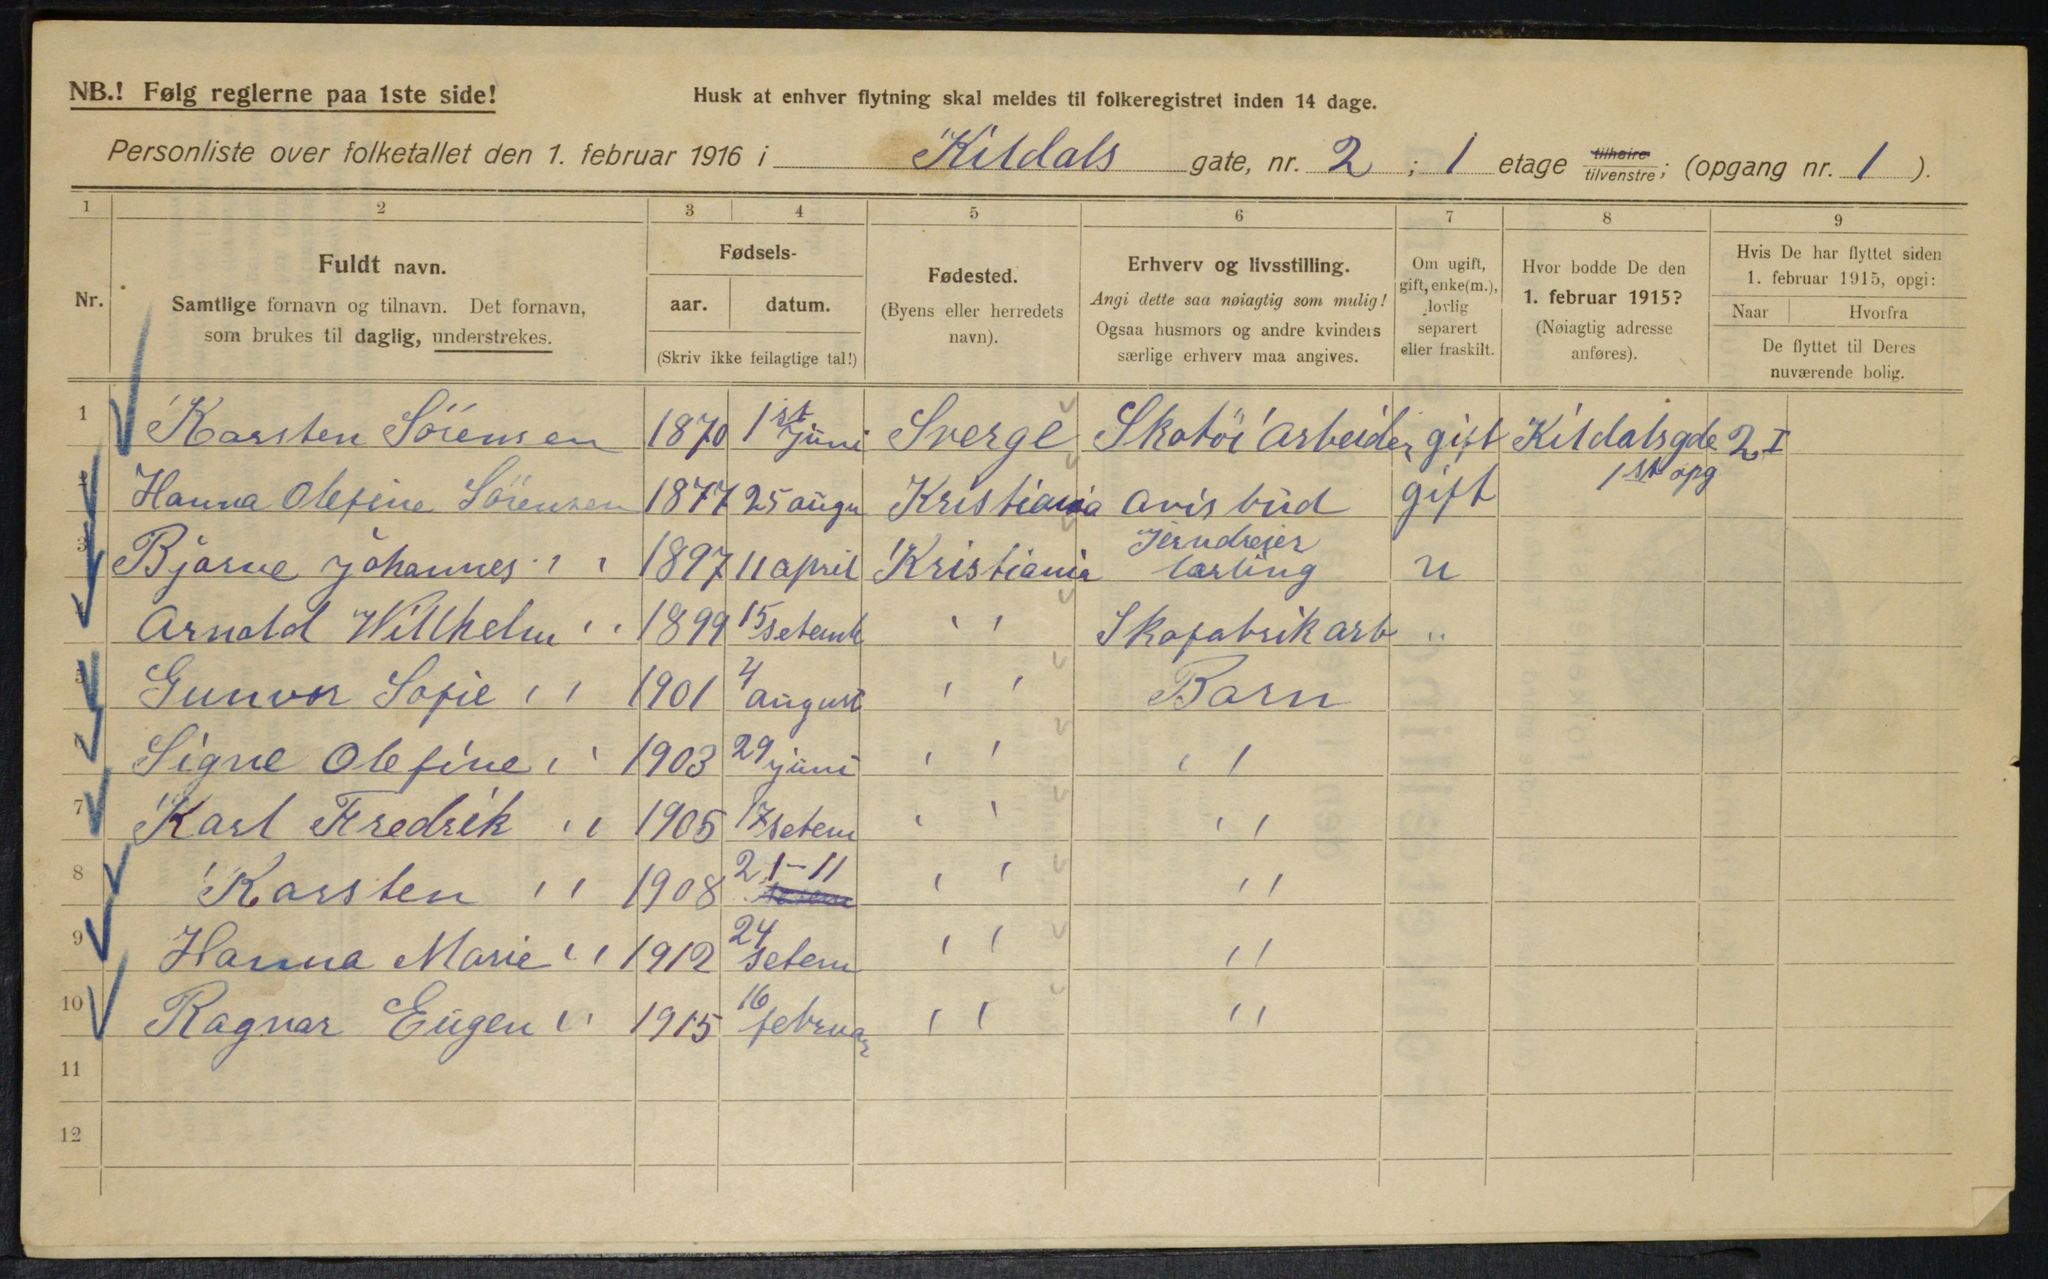 NB.! Følg reglerne paa 1ste side!
Husk at enhver flytning skal meldes til folkeregistret inden 14 dage.
Personliste over folketallet den 1. februar 1916 i Kildals gate, nr. 2 ; 1 etage tilhøire tilvenstre; (opgang nr. 1 ).
1 2 3 4 5 6 7 8 9
Nr.
Fuldt navn.
Samtlige fornavn og tilnavn. Det fornavn,
som brukes til daglig, understrekes.
Fødsels-
aar. datum.
(Skriv ikke feilagtige tal!)
Fødested.
(Byens eller herredets
navn).
Erhverv og livsstilling.
Angi dette saa nøiagtig som mulig!
Ogsaa husmors og andre kvinders
særlige erhverv maa angives.
Om ugift,
gift, enke(m.),
lovlig
separert
eller fraskilt.
Hvor bodde De den
1. februar 1915?
(Nøiagtig adresse
anføres).
Hvis De har flyttet siden
1. februar 1915, opgi:
Naar Hvorfra
De flyttet til Deres
nuværende bolig.
1 Karsten Sörensen 1870 1st juni Sverge Skotöi Arbeider gift Kildalsgde 2 I
1st opg
Hanna Olefine Sörensen 1877 25 augu Kristiania Avis bud gift
3 Bjarne Johannes " 1897 11 april Kristiania Jerndreier lærling u
Arnold Willhelm " 1899 15 setemb " " Skofabrik arb "
5 Gunvor Sofie " 1901 4 august " " Barn
Signe Olefine " 1903 29 juni " " "
7 Karl Fredrik " 1905 17 setem " " "
8 Karsten " 1908 21-11 " " "
9 Hanna Marie " 1912 24 setem " " "
10 Ragnar Eugen " 1915 16 februar " " "
11
12